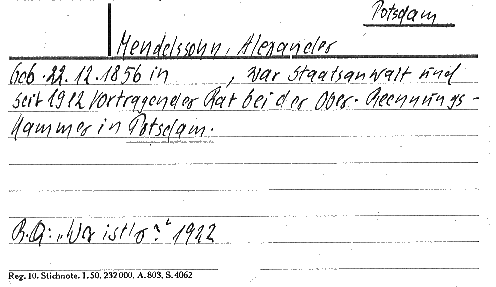 Potsdam
Mendelssohn, Alexander
Geb. 22.12.1856 in , war Staatsanwalt und
seit 1912 Vortragender Rat bei der Ober-Rechnungs-
kammer in Potsdam.
B.Q: „Wer ist's?“ 1922
Reg. 10. Stichnote. 1.50, 232000, A. 803, S. 4062